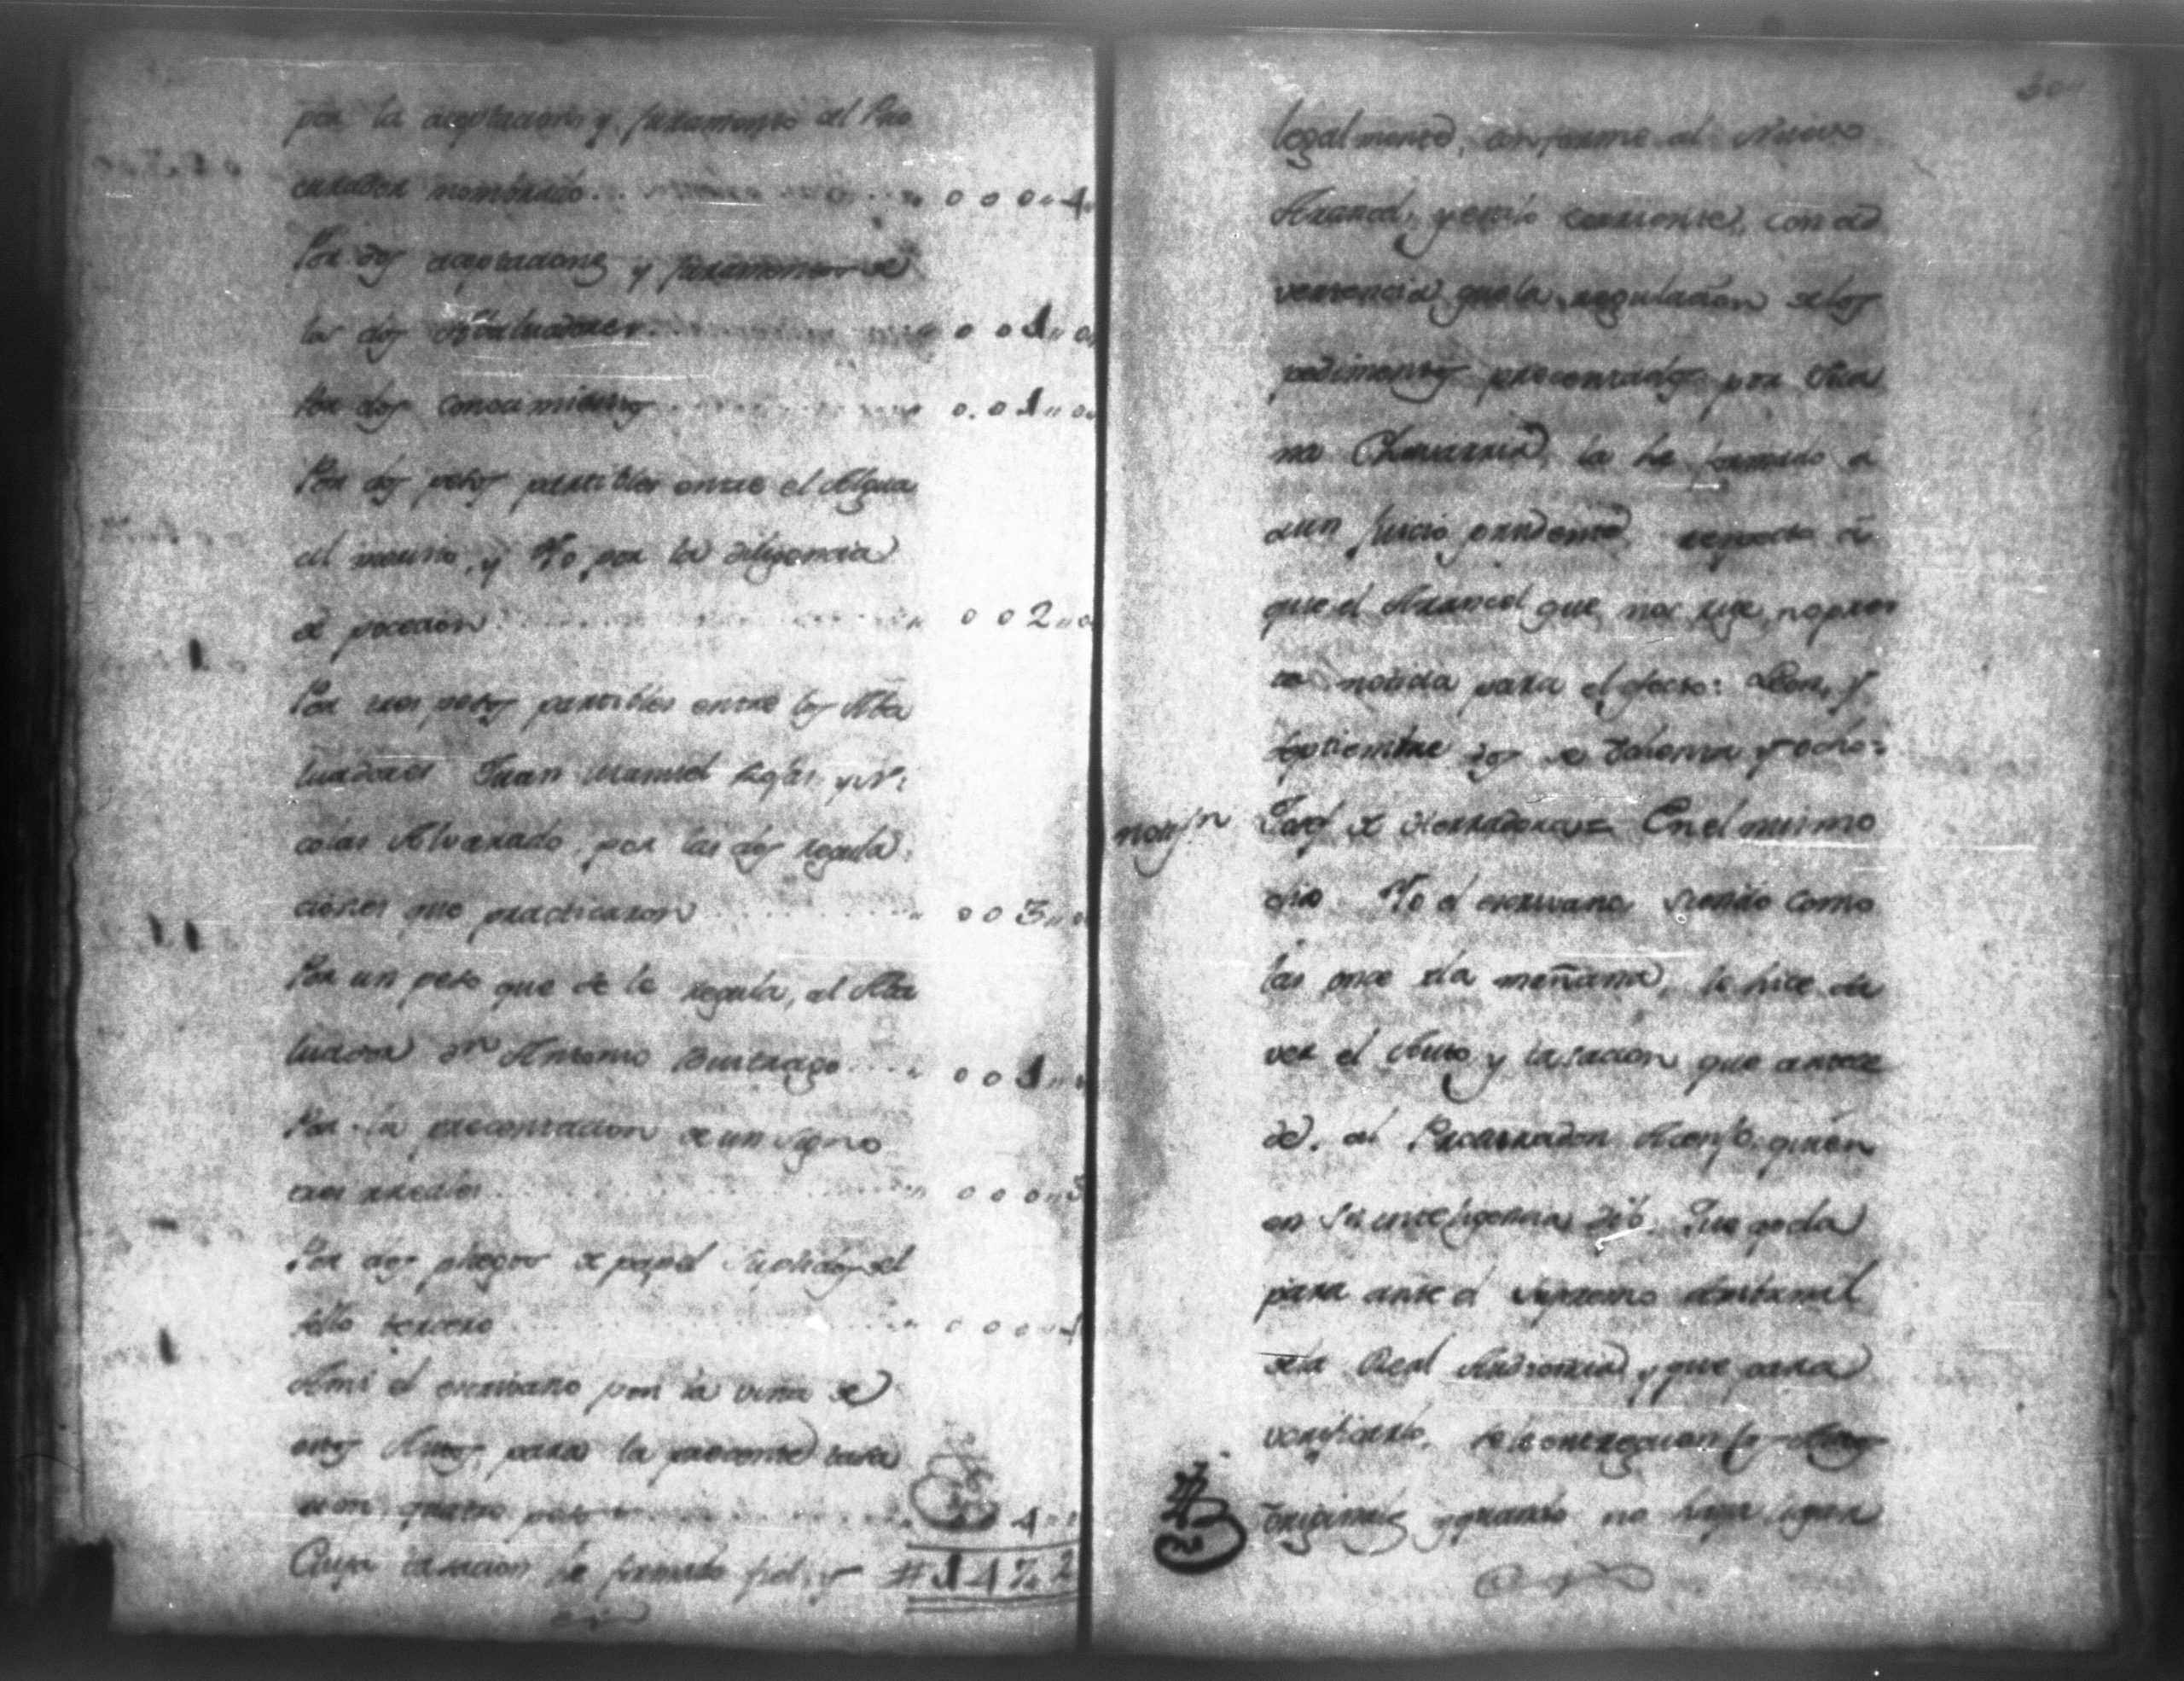 por la aceptacion, y juramento del Pro
curador nombrado . . . . . 0 0 0 „ 4 „
Por dos aceptaciones y juramentos de
los dos Abaluadores . . . . . 0 0 1 „ 0
Por dos conocimientos . . . . . 0 0 1 „ 0
Por dos pesos partibles entre el Algua
cil maior, y Yo por la diligencia
de pocecion . . . . . 0 0 2 „ 0
Por tres pesos partibles entre los Aba
luadores Juan Manuel Rojas, y Ni
colas Alvarado, por las dos regula
ciones que practicaron . . . . . 0 0 3 „
Por un peso que se le regula, al Aba
luador Dn Antonio Buitrago . . . . 0 0 1 „
Por la precentacion de un signo
tres rreales . . . . . 0 0 0 „ 3
Por dos pliegos de papel suplidos del
sello tercero . . . . . 0 0 0 „
Ami el escrivano por la vista de
estos Autos, para la precente tasa
cion quatro pesos . . . . . 4 „
Cuya tasacion he formado fiel, y # 147„2
legalmente, conforme al Nuevo
Arancel, y estilo corriente, con ad
vertencia que la regulacion de los
pedimentos precentados por Jua
na Chavarria, la he formado a
aun juicio prudente, respecto á
que el Arancel que nos rije, no pres
ta noticia para el efecto: Leon, y
Septiembre dos de ochenta y ocho=
notifn Josef de Herradora= En el mismo
dia Yo el escrivano, siendo como
las once de la mañana, le hice sa
ver el Auto y tasacion que antece
de, al Procurador quien
en su inteligencia dijo: Que apela
para ante el Supremo tribunal
dela Real Audiencia, y que para
verificarlo, se le entreguen los Autos
originales y quando no haya lugar